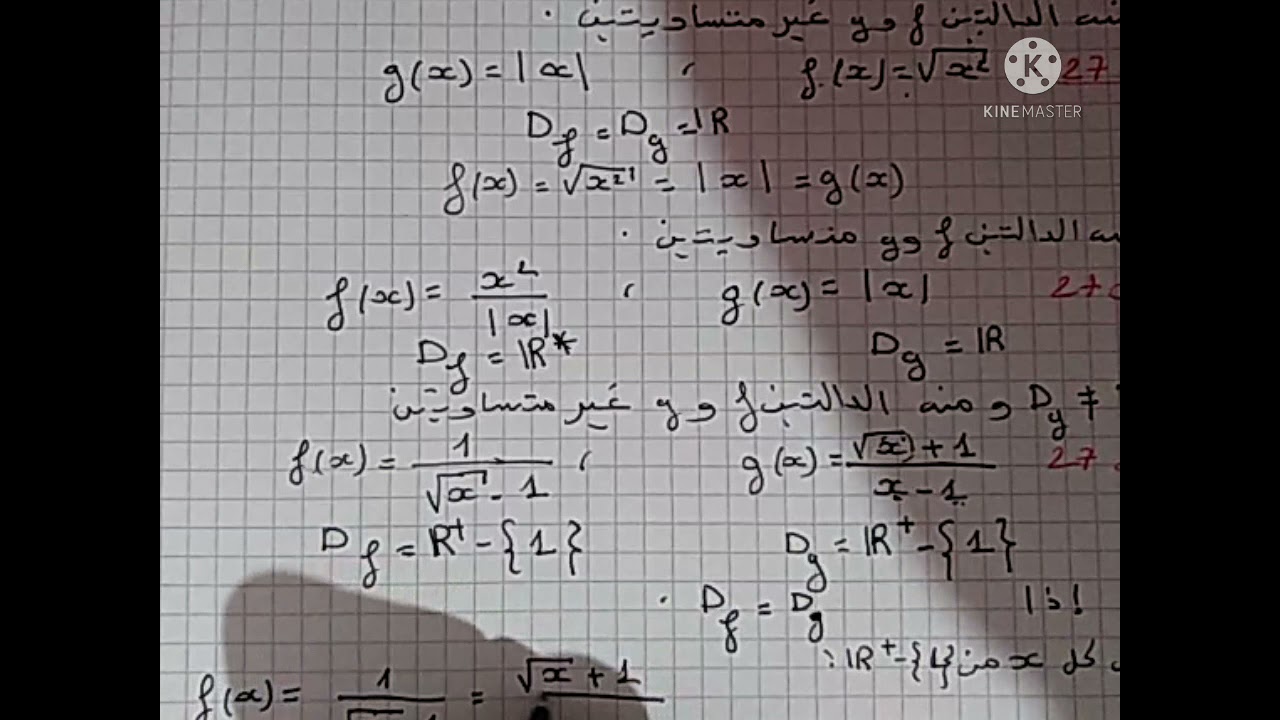 الدالتين f و g غير متساويتين .
27 f(x) = √x² ، g(x) = |x|
KINEMASTER
D_f = D_g = ℝ
f(x) = √x² = |x| = g(x)
الدالتين f و g متساويتين .
27 g(x) = |x| ، f(x) = x²/|x|
D_g = ℝ D_f = ℝ*
D_g ≠ و منه الدالتين f و g غير متساويتين
27 g(x) = (√x + 1)/(x - 1) ، f(x) = 1/(√x - 1)
D_g = ℝ⁺ - {1} D_f = ℝ⁺ - {1}
إذا D_f = D_g .
كل x من ℝ⁺ - {1} :
f(x) = 1/ = √x + 1